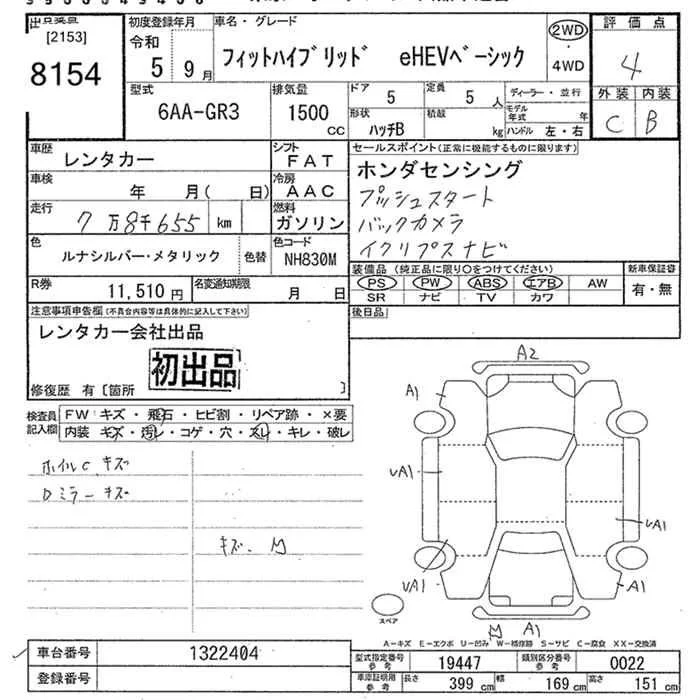 [2153]
8154
初度登録年月
令和
5年 9月
車名・グレード
フィットハイブリッド eHEVベーシック
2WD
・
4WD
評価点
4
外装 内装
C B
型式
6AA-GR3
排気量
1500
CC
ドア 5
定員 5 人
形状 ハッチB
積載 kg
ディーラー・並行
モデル年式 年
ハンドル 左・右
車歴 レンタカー
シフト FAT
車検 年 月( 日)
冷房 AAC
走行 7万8千655 km
燃料 ガソリン
色 ルナシルバー・メタリック 色替
色コード NH830M
R券 11,510円
名変通知期限 月 日
セールスポイント(正常に機能するものに限ります)
ホンダセンシング
プッシュスタート
バックカメラ
イクリプスナビ
装備品 (純正品に限り○をつけてください)
PS PW ABS エアB AW
SR ナビ TV カワ
新車保証書
有・無
後日品
注意事項申告欄(不具合内容等は具体的に記入して下さい)
レンタカー会社出品
初出品
修復歴 有〔箇所 〕
検査員記入欄
FW キズ・飛石・ヒビ割・リペア跡・×要
内装 キズ・汚レ・コゲ・穴・スレ・キレ・破レ
ホイルC キズ
Dミラー キズ
キズ. M
A2
A1
UA1
UA1
UA1
A1
M A1
スペア
A-キズ E-エクボ U-凹み W-補修跡 S-サビ C-腐食 XX-交換済
車台番号 1322404
登録番号
型式指定番号参考 19447
類別区分番号参考 0022
車庫証明用参考 長さ 399 cm 幅 169 cm 高さ 151 cm